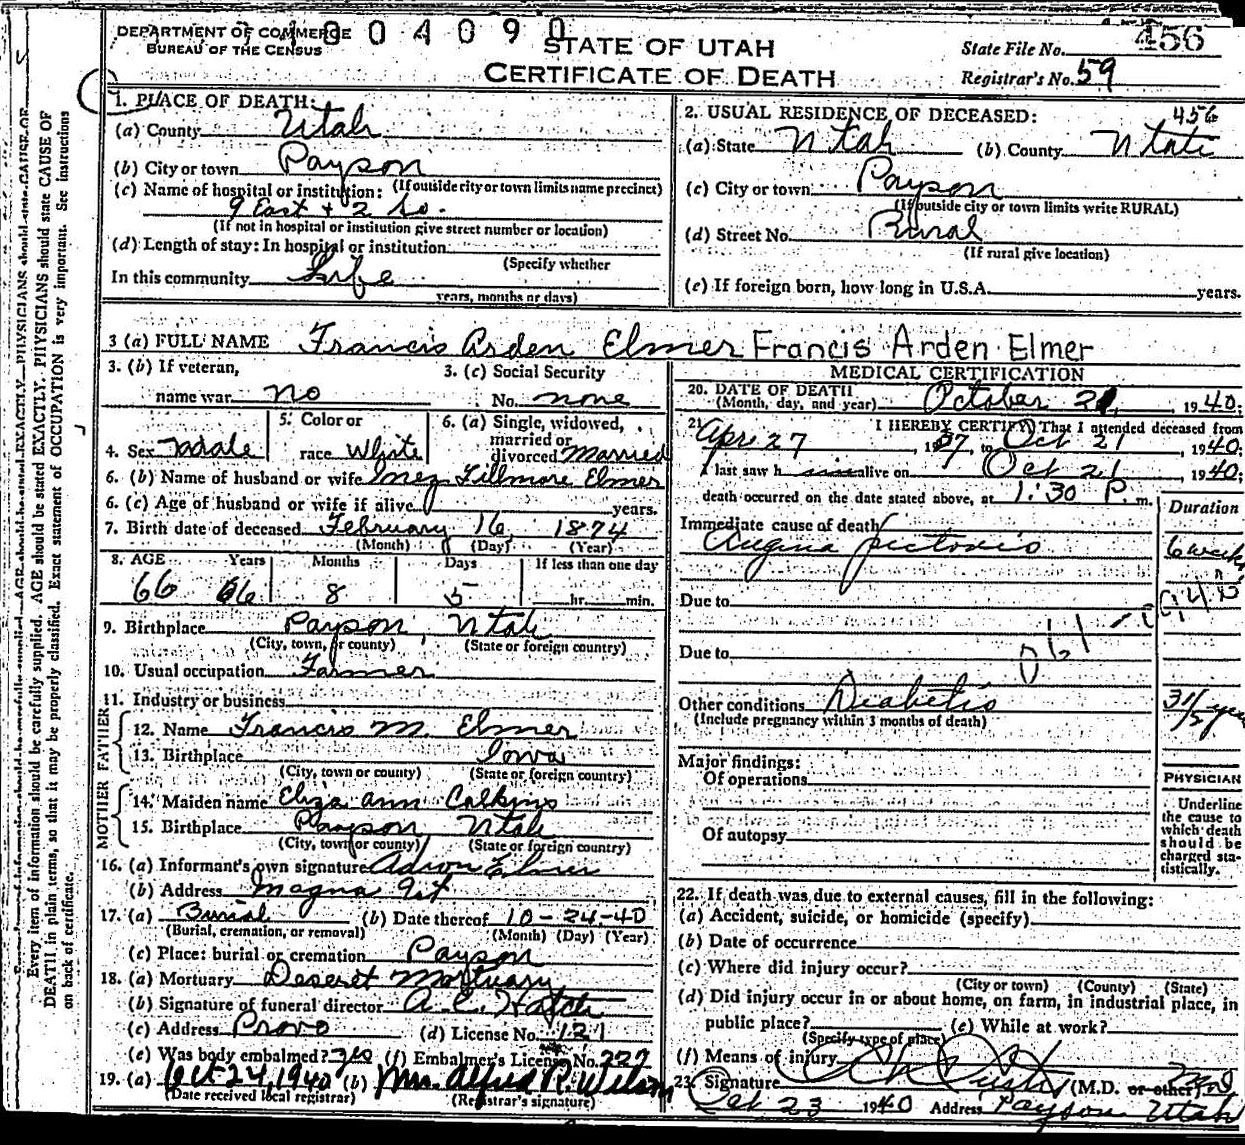 DEPARTMENT OF COMMERCE
BUREAU OF THE CENSUS
04090
STATE OF UTAH
CERTIFICATE OF DEATH
State File No. 456
Registrar's No. 59
1. PLACE OF DEATH:
(a) County Utah
(b) City or town Payson
(If outside city or town limits name precinct)
(c) Name of hospital or institution:
9 East + 2 So.
(If not in hospital or institution give street number or location)
(d) Length of stay: In hospital or institution
(Specify whether
In this community Life
years, months or days)
2. USUAL RESIDENCE OF DECEASED: 456
(a) State Utah (b) County Utah
(c) City or town Payson
(If outside city or town limits write RURAL)
(d) Street No. Rural
(If rural give location)
(e) If foreign born, how long in U.S.A. years.
3 (a) FULL NAME Francis Arden Elmer Francis Arden Elmer
3. (b) If veteran,
name war no
3. (c) Social Security
No. none
4. Sex Male
5. Color or
race White
6. (a) Single, widowed,
married or
divorced Married
6. (b) Name of husband or wife Inez Fillmore Elmer
6. (c) Age of husband or wife if alive years.
7. Birth date of deceased February 16, 1874
(Month) (Day) (Year)
8. AGE Years Months Days If less than one day
66 66 8 5 hr. min.
9. Birthplace Payson, Utah
(City, town, or county) (State or foreign country)
10. Usual occupation Farmer
11. Industry or business
FATHER
12. Name Francis M. Elmer
13. Birthplace Iowa
(City, town or county) (State or foreign country)
MOTHER
14. Maiden name Eliza Ann Calkins
15. Birthplace Payson, Utah
(City, town or county) (State or foreign country)
16. (a) Informant's own signature Elmer
(b) Address Magna Ut
17. (a) Burial (b) Date thereof 10-24-40
(Burial, cremation, or removal) (Month) (Day) (Year)
(c) Place: burial or cremation Payson
18. (a) Mortuary Deseret Mortuary
(b) Signature of funeral director A. E. Hatch
(c) Address Provo (d) License No. 121
(e) Was body embalmed? yes (f) Embalmer's License No. 222
19. (a) Oct 24, 1940 (b) Mrs. Alfred R. Wilson
(Date received local registrar) (Registrar's signature)
MEDICAL CERTIFICATION
20. DATE OF DEATH
(Month, day, and year) October 21, 1940;
21. I HEREBY CERTIFY, That I attended deceased from
Apr 27, 1937, to Oct 21, 1940;
I last saw him alive on Oct 21, 1940;
death occurred on the date stated above, at 1:30 P. m.
Duration
Immediate cause of death
Angina pectoris 6 weeks
Due to
Due to
Other conditions Diabetis 3 1/2 years
(Include pregnancy within 3 months of death)
Major findings:
Of operations
Of autopsy
PHYSICIAN
Underline
the cause to
which death
should be
charged sta-
tistically.
22. If death was due to external causes, fill in the following:
(a) Accident, suicide, or homicide (specify)
(b) Date of occurrence
(c) Where did injury occur?
(City or town) (County) (State)
(d) Did injury occur in or about home, on farm, in industrial place, in
public place? (e) While at work?
(Specify type of place)
(f) Means of injury
23. Signature (M.D. or other)
Oct 23 1940 Address Payson Utah
Every item of information should be carefully supplied. AGE should be stated EXACTLY. PHYSICIANS should state CAUSE OF
DEATH in plain terms, so that it may be properly classified. Exact statement of OCCUPATION is very important. See instructions
on back of certificate.